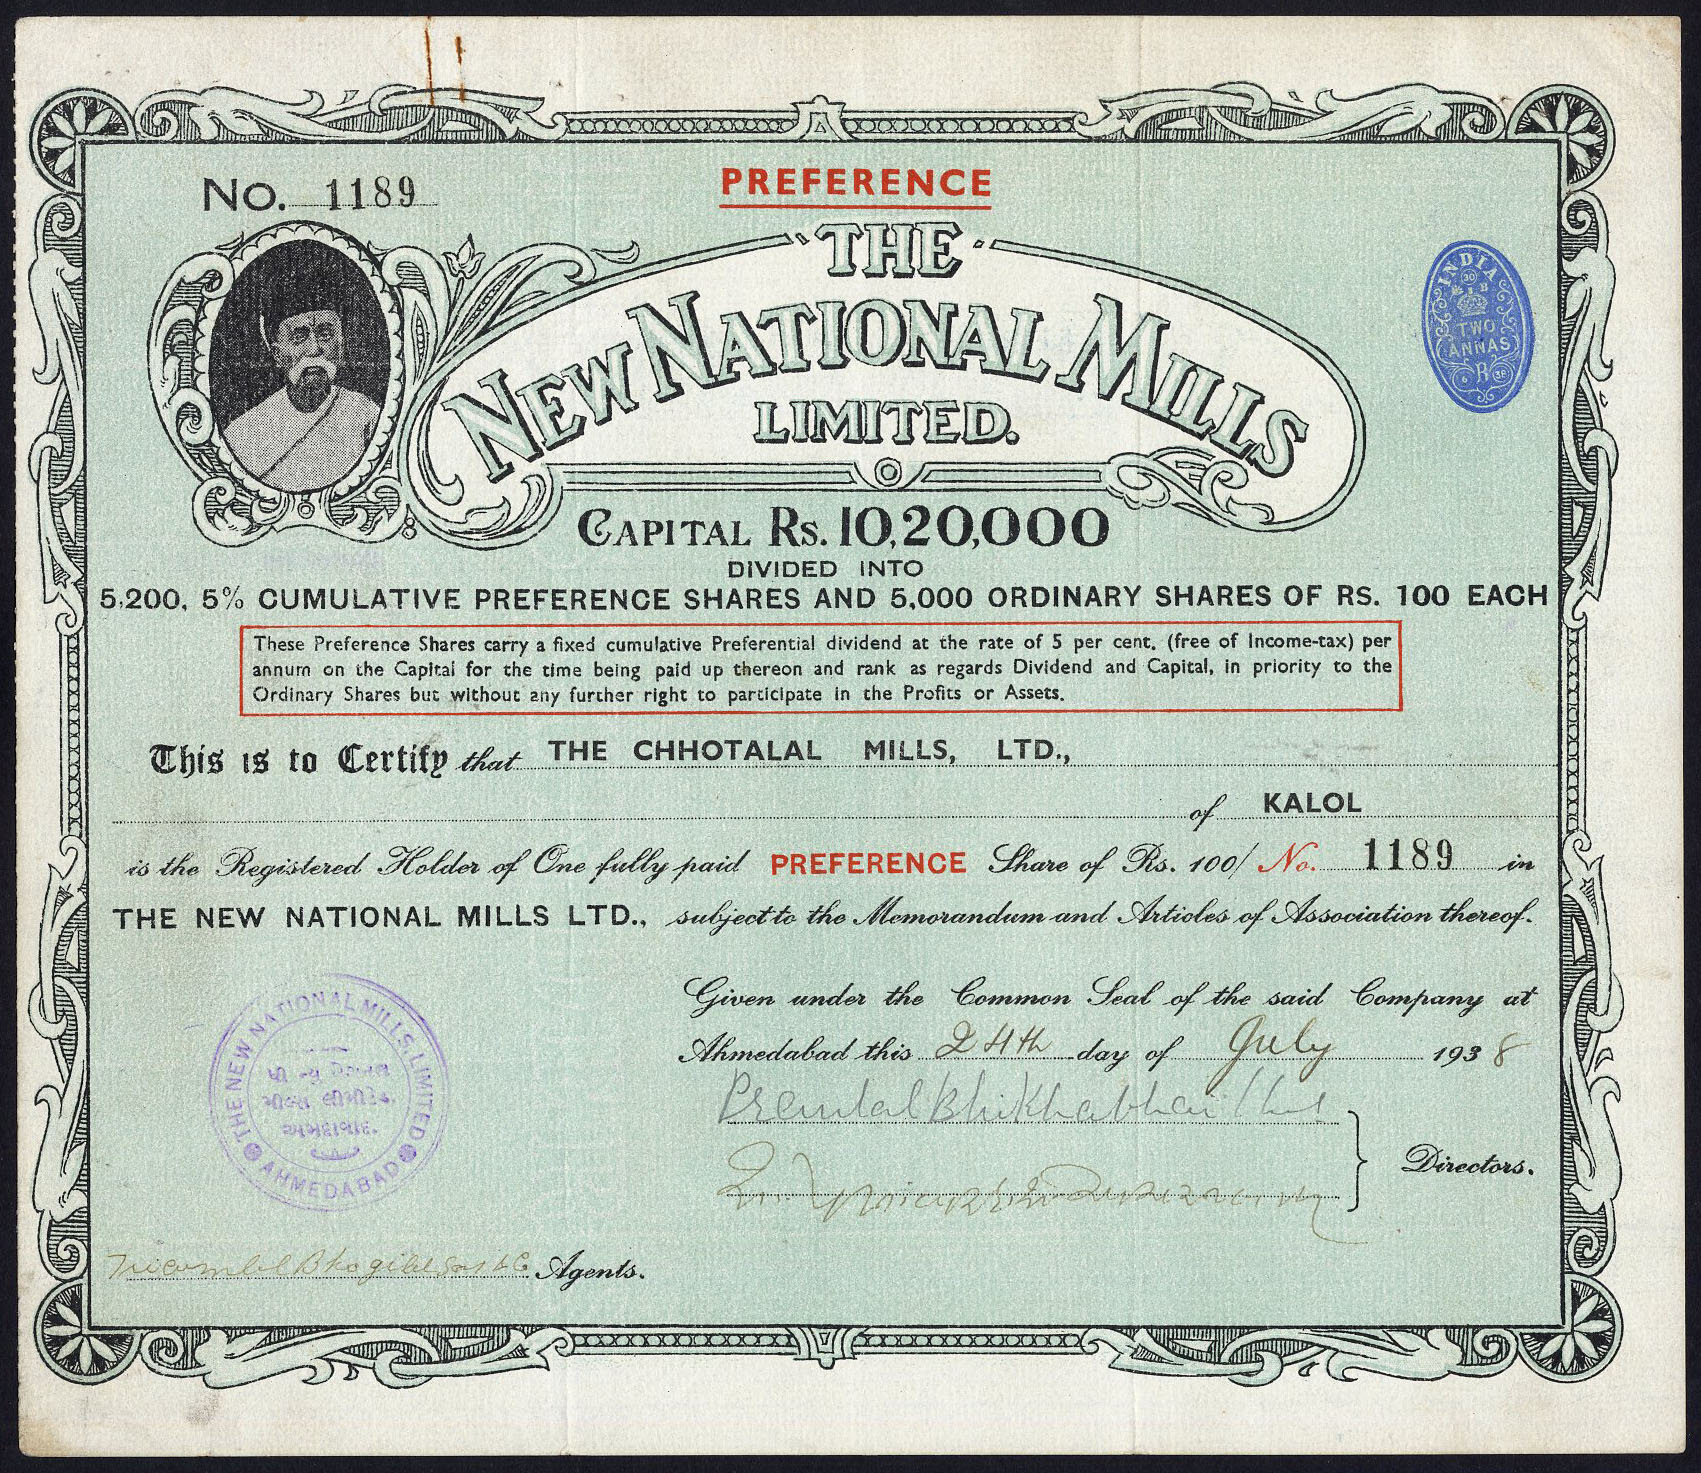 No. 1189
PREFERENCE
THE
NEW NATIONAL MILLS
LIMITED.
INDIA
30
TWO
ANNAS
R
CAPITAL RS. 10,20,000
DIVIDED INTO
5,200, 5% CUMULATIVE PREFERENCE SHARES AND 5,000 ORDINARY SHARES OF RS. 100 EACH
These Preference Shares carry a fixed cumulative Preferential dividend at the rate of 5 per cent. (free of Income-tax) per
annum on the Capital for the time being paid up thereon and rank as regards Dividend and Capital, in priority to the
Ordinary Shares but without any further right to participate in the Profits or Assets.
This is to Certify that THE CHHOTALAL MILLS, LTD.,
of KALOL
is the Registered Holder of One fully paid PREFERENCE Share of Rs. 100/ No. 1189 in
THE NEW NATIONAL MILLS LTD., subject to the Memorandum and Articles of Association thereof.
Given under the Common Seal of the said Company at
Ahmedabad this 24th day of July 1938
THE NEW NATIONAL MILLS, LIMITED
AHMEDABAD
Directors.
Agents.